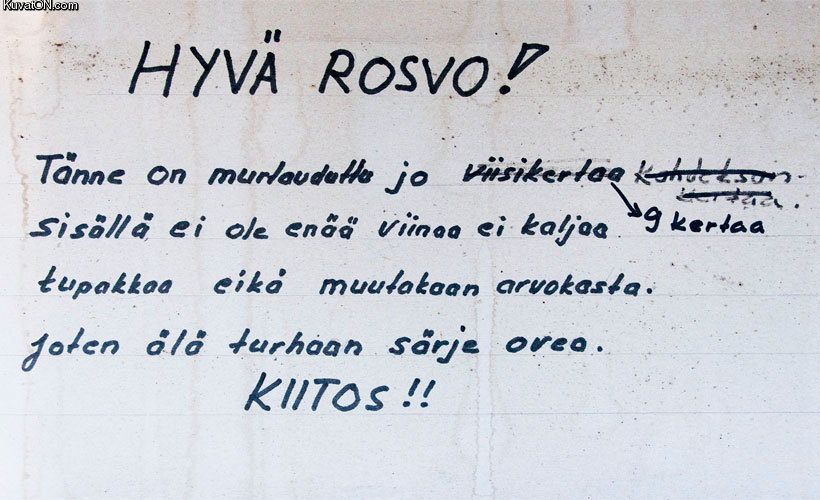 KuvatON.com
HYVÄ ROSVO!
Tänne on murtauduttu jo viisikertaa kahdeksan
kertaa.
sisällä ei ole enää viinaa ei kaljaa 9 kertaa
tupakkaa eikä muutakaan arvokasta.
Joten älä turhaan särje ovea.
KIITOS!!